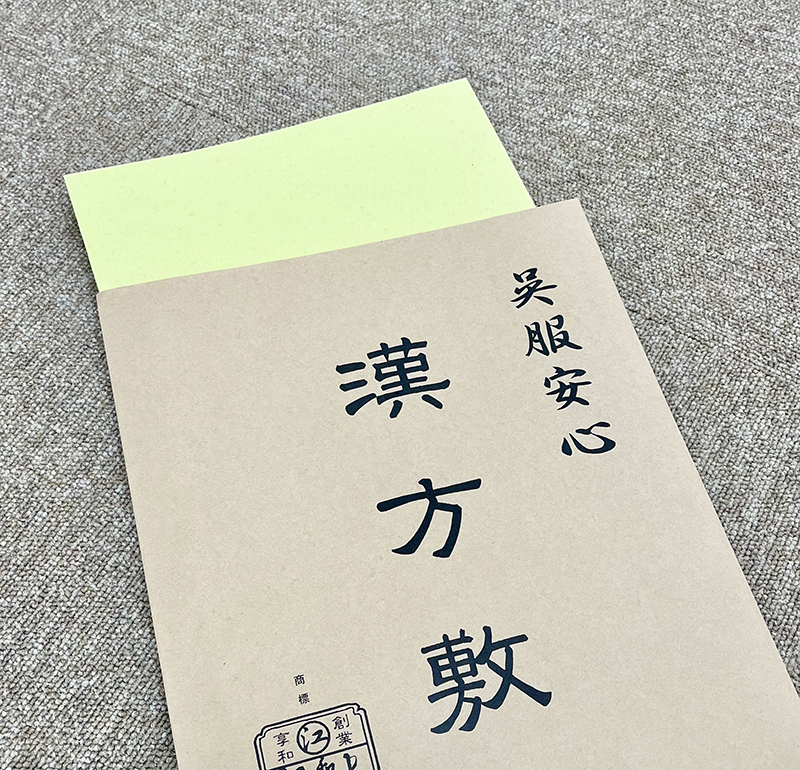 呉服安心
漢方敷
商標
創業
江
享和